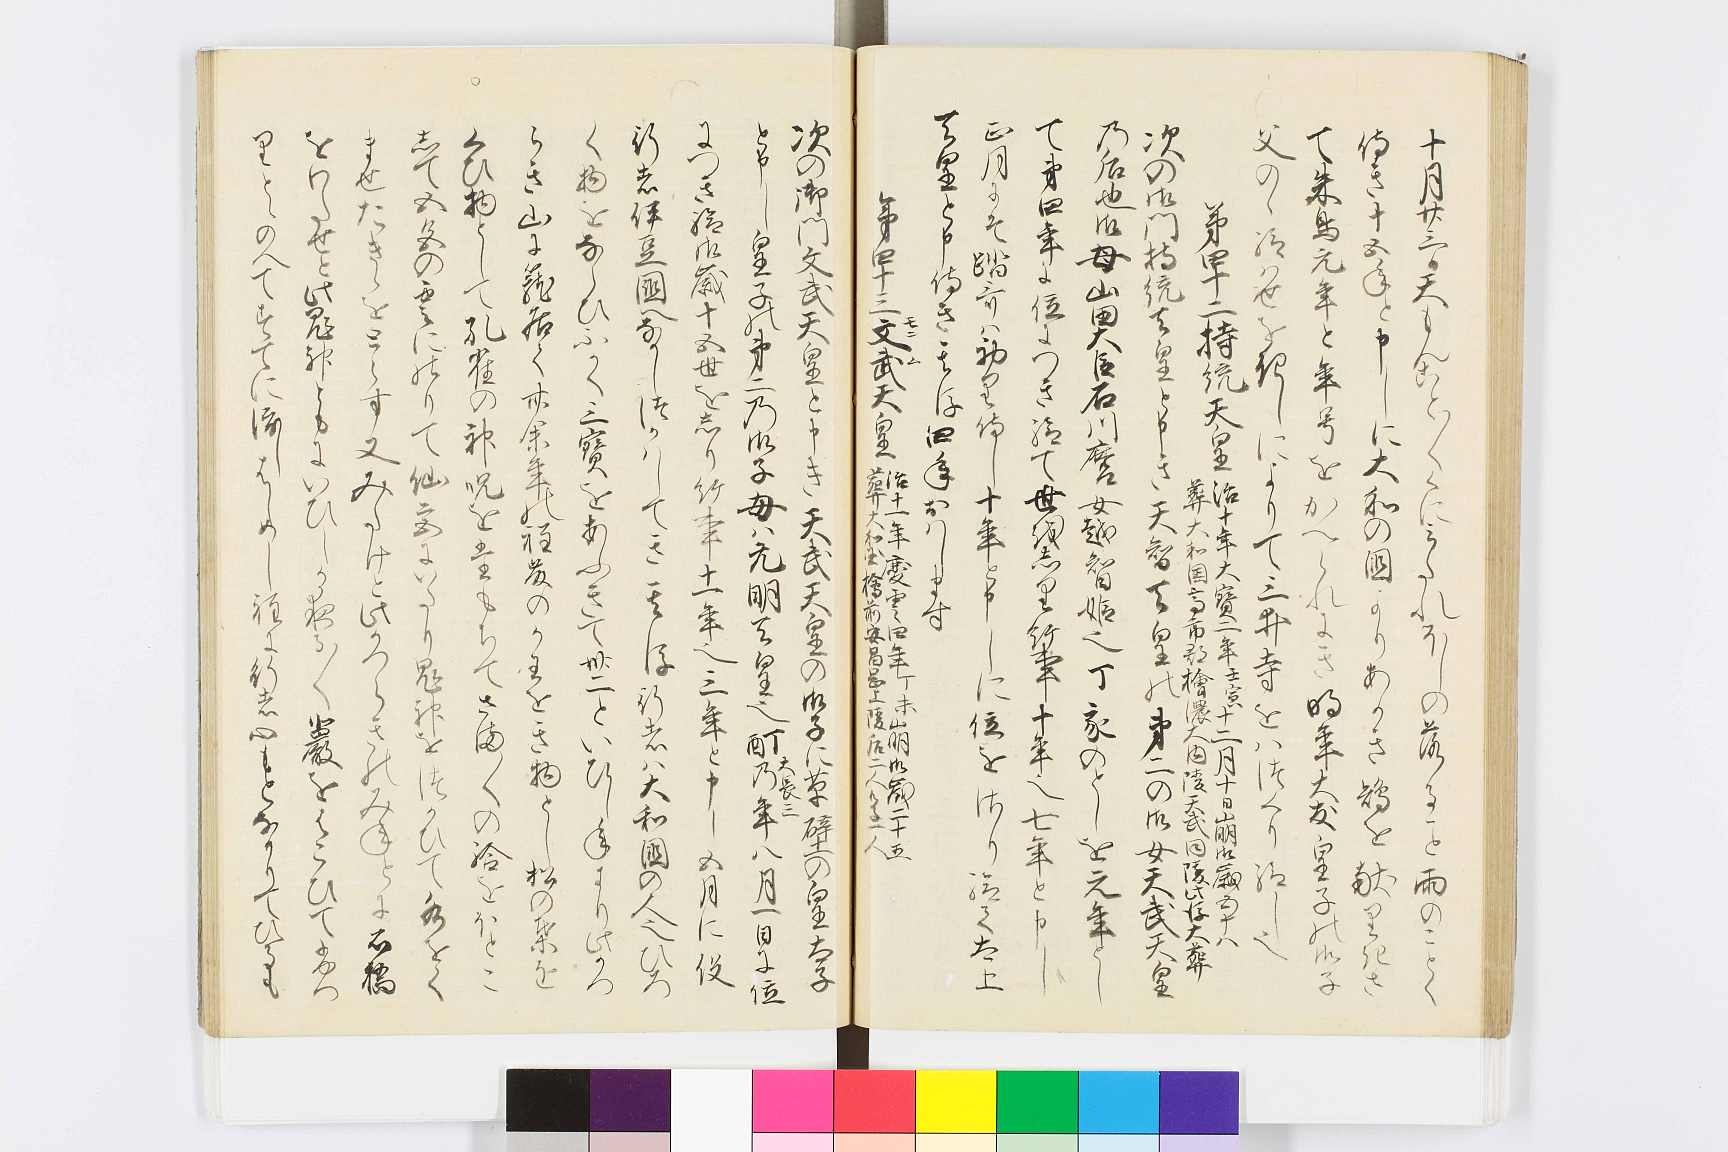 十月廿三日天もんことことくにみたれほしの落る事雨のことく
侍き十五年と申しに大和の国よりあかき鶏を献里たりき
て朱鳥元年と年号をかへられにき明年大友皇子の御子
父のゝ給はせを報しによりて三井寺をはつくり給し也
第四十二持統天皇 治十年大寳二年壬寅十二月十日崩御歳五十八
葬大和国高市郡檜濃大内陵天武同陵此条大葬
次の御門持統天皇と申き天智天皇の第二の御女天武天皇
乃后也御母山田大臣石川麿女越智娘也丁亥のとしを元年とし
て第四年に位につき給て世越志里給事十年也七年と申し
正月にそ踏哥は初里侍し十年と申しに位をさり給て太上
天皇と申侍き其後四年おはします
第四十三文武天皇 治十一年慶雲四年丁未崩御歳二十五
葬大和国檜前安昌岳上陵后二人皇子一人
次の御門文武天皇と申き天武天皇の御子に草壁の皇太子
と申し皇子の第二乃御子母は元明天皇也丁酉乃年八月一日に位
につき給御歳十五世を志り給事十一年也三年と申し五月に役
行者伊豆国へなかしつかはしてき其後行者は大和国の人也ひろ
く物をならひふかく三寳をあふきて卅二といひし年より此かつ
らき山に籠居て卅余年の程藤のかはをき物とし松の葉を
くひ物として孔雀の神呪を多もちてさま〳〵の験をほとこ
志て五色の雲にのりて仙宮にいたり鬼神をつかひて水をく
ませたきゝをとらす又みたけと此かつらきのみねとに石橋
をわたせと此鬼神ともにいひしかは夜な〳〵巖をはこひて
里とゝのへてすてに渡しはしめし程に行者心もとなかりてひるも